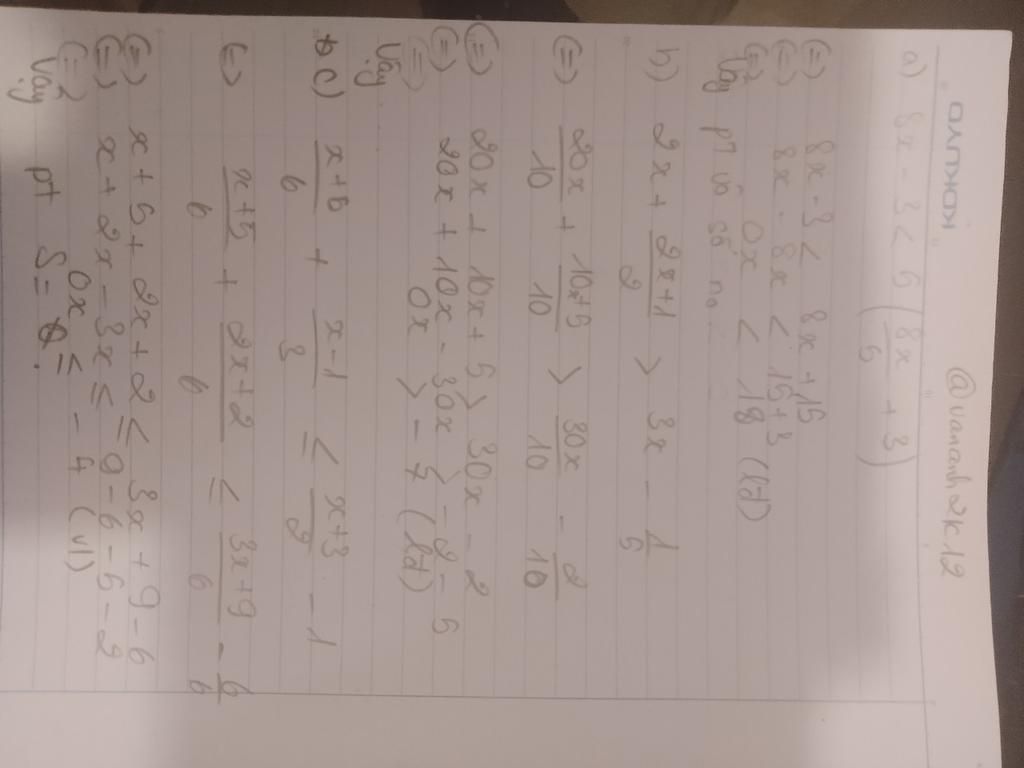 OKMLIO
@vananh2k12
a) 8x - 3 < 5 ( 8x/5 + 3 )
(=) 8x - 3 < 8x + 15
(=) 8x - 8x < 15 + 3
(=) 0x < 18 (lđ)
Vậy pt vô số no
b) 2x + 2x+1/2 > 3x - 1/5
(=) 20x/10 + 10x+5/10 > 30x/10 - 2/10
(=) 20x + 10x + 5 > 30x - 2
(=) 20x + 10x - 30x > - 2 - 5
(=) 0x > - 7 (lđ)
Vậy
c) x+5/6 + x-1/3 ≤ x+3/2 - 1
(=) x+5/6 + 2x+2/6 ≤ 3x+9/6 - 6/6
(=) x + 5 + 2x + 2 ≤ 3x + 9 - 6
(=) x + 2x - 3x ≤ 9 - 6 - 5 - 2
(=) 0x ≤ - 4 (vl)
Vậy pt S = ∅.